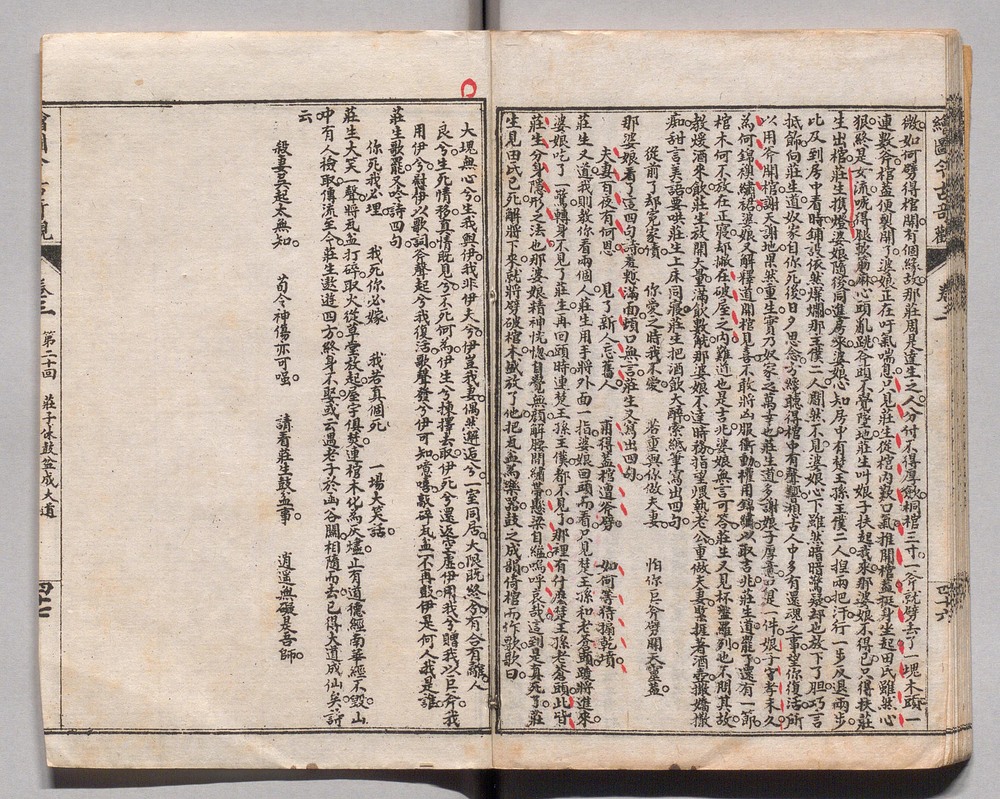 繪圖今古奇觀
卷二
四十六
微。如何劈得棺開。有個緣故。那莊周是達生之人。分付不得厚斂。桐棺三寸。一斧就劈去了一塊木頭。一
連數斧。棺蓋便裂開了。婆娘正在吁氣喘息。只見莊生從棺內歎口氣。推開棺蓋。挺身坐起。田氏雖然心
狠。終是女流。嚇得腿軟筋麻。心頭亂跳。斧頭不覺墜地。莊生叫娘子扶起我來。那婆娘不得已。只得扶莊
生出棺。莊生攜燈。婆娘隨後同進房來。婆娘心知房中有楚王孫主僕二人。捏兩把汗。行一步反退兩步
比及到房中看時。鋪設依然燦爛。那主僕二人闃然不見。婆娘心下雖然暗暗驚疑。却也放下了胆。巧言
抵飾。向莊生道。奴家自你死後。日夕思念。方纔聽得棺中有聲響。想古人中多有還魂之事。望你復活。所
以用斧開棺。謝天謝地。果然重生。實乃奴家之萬幸也。莊生道。多謝娘子厚意。只是一件。娘子守孝未久
為何錦襖繡裙。婆娘又解釋道。開棺見喜。不敢將凶服衝動。權用錦繡。以取吉兆。莊生道。罷了。還有一節
棺木何不放在正寢。却撇在破屋之內。難道也是吉兆。婆娘無言可答。莊生又見杯盤羅列。也不問其故
教煖酒來飲。莊生放開大量。滿飲數觥。那婆娘不達時務。指望煨熱老公。重做夫妻。緊捱著酒壺。撒嬌撒
痴。甜言美語。要哄莊生上床同寢。莊生把酒飲大醉。索紙筆寫出四句
從前了却冤家債 你愛之時我不愛 若重與你做夫妻 怕你巨斧劈開天靈蓋
那婆娘看了這四句詩。羞慙滿面。頃口無言。莊生又寫出四句
夫妻百夜有何恩 見了新人忘舊人 甫得蓋棺遭斧劈 如何等待搧乾墳
莊生又道。我則教你看兩個人。莊生用手將外面一指。婆娘回頭而看。只見楚王孫和老蒼頭踱將進來。
婆娘吃了一驚。轉身不見了莊生。再回頭時。連楚王孫主僕都不見了。那裡有什麼楚王孫老蒼頭。此皆
莊生分身隱形之法也。那婆娘精神恍惚。自覺無顏。解腰間繡帶。懸梁自縊。嗚呼哀哉。這到是真死了。莊
生見田氏已死。解將下來。就將劈破棺木盛放了他。把瓦盆為樂器。鼓之成韻。倚棺而作歌。歌曰。
大塊無心兮。生我與伊。我非伊夫兮。伊豈我妻。偶然邂逅兮。一室同居。大限既終兮。有合有離。人
之無良兮。生死情移。真情既見兮。不死何為。伊生兮揀擇去取。伊死兮還返空虛。伊用我兮。贈我以巨斧。我
用伊兮。慰伊以歌詞。斧聲起兮我復活。歌聲發兮伊可知。噫嘻。敲碎瓦盆不再鼓。伊是何人我是誰
莊生歌罷。又吟詩四句
你死我必埋 我死你必嫁 我若真個死 一場大笑話。
莊生大笑一聲。將瓦盆打碎。取火從草堂放起。屋宇俱焚。連棺木化為灰燼。止有道德經南華經不毀。山
中有人檢取。傳流至今。莊生遨遊四方。終身不娶。或云遇老子於函谷關。相隨而去。已得大道成仙矣。詩
云
殺妻吳起太無知。 荀令神傷亦可嗤。 請看莊生鼓盆事。 逍遙無礙是吾師。
繪圖今古奇觀
卷二 第二十回 莊子休鼓盆成大道
四十七